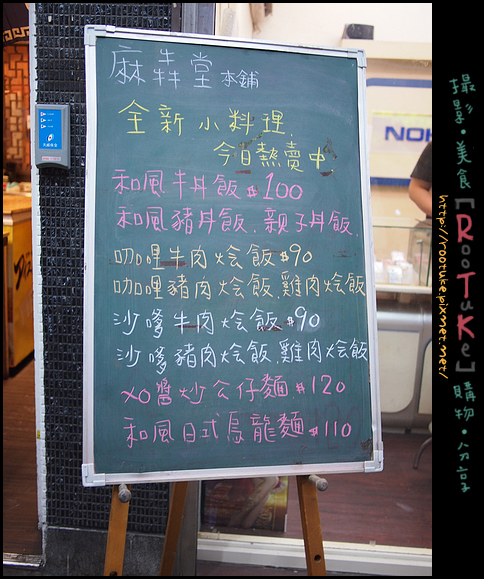 麻犇堂 本鋪
全新小料理.
今日熱賣中
和風牛丼飯$100
和風豬丼飯.親子丼飯.
咖哩牛肉燴飯$90
咖哩豬肉燴飯.雞肉燴飯
沙嗲牛肉燴飯$90
沙嗲豬肉燴飯.雞肉燴飯
XO醬炒公仔麵$120
和風日式烏龍麵$110
NOK
撮影•美食【RooTuKe】購物•分享
http://rootuke.pixnet.net/